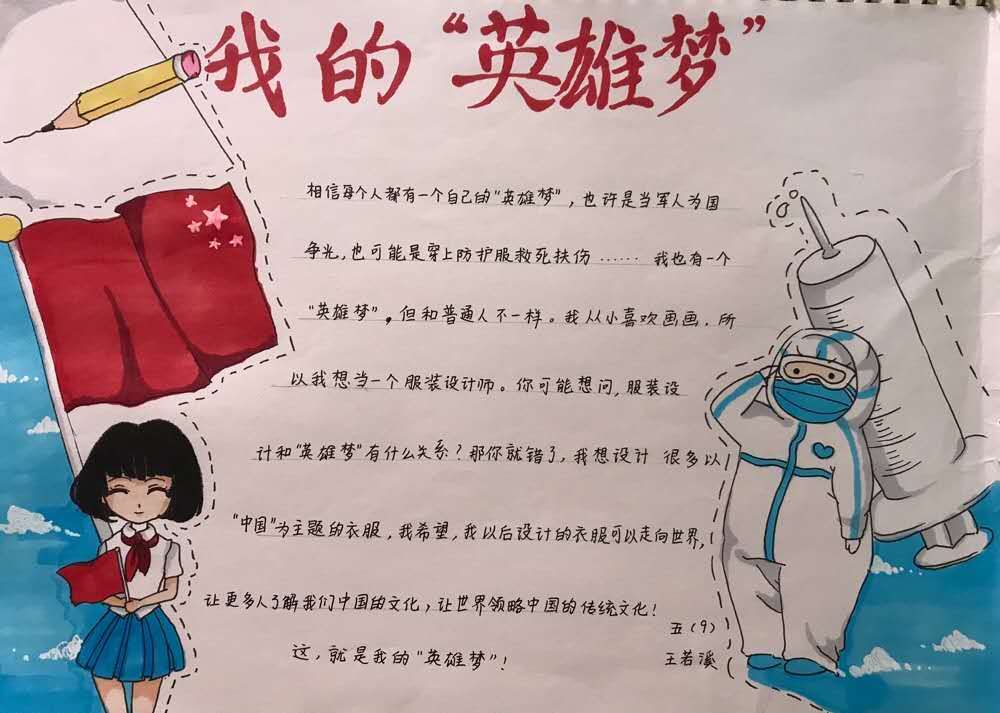 我的“英雄梦”
相信每个人都有一个自己的“英雄梦”，也许是当军人为国
争光，也可能是穿上防护服救死扶伤……我也有一个
“英雄梦”。但和普通人不一样。我从小喜欢画画，所
以我想当一个服装设计师。你可能想问，服装设
计和“英雄梦”有什么关系？那你就错了，我想设计 很多以
“中国”为主题的衣服，我希望，我以后设计的衣服可以走向世界，
让更多人了解我们中国的文化，让世界领略中国的传统文化！
这，就是我的“英雄梦”！
五（9）
王若溪